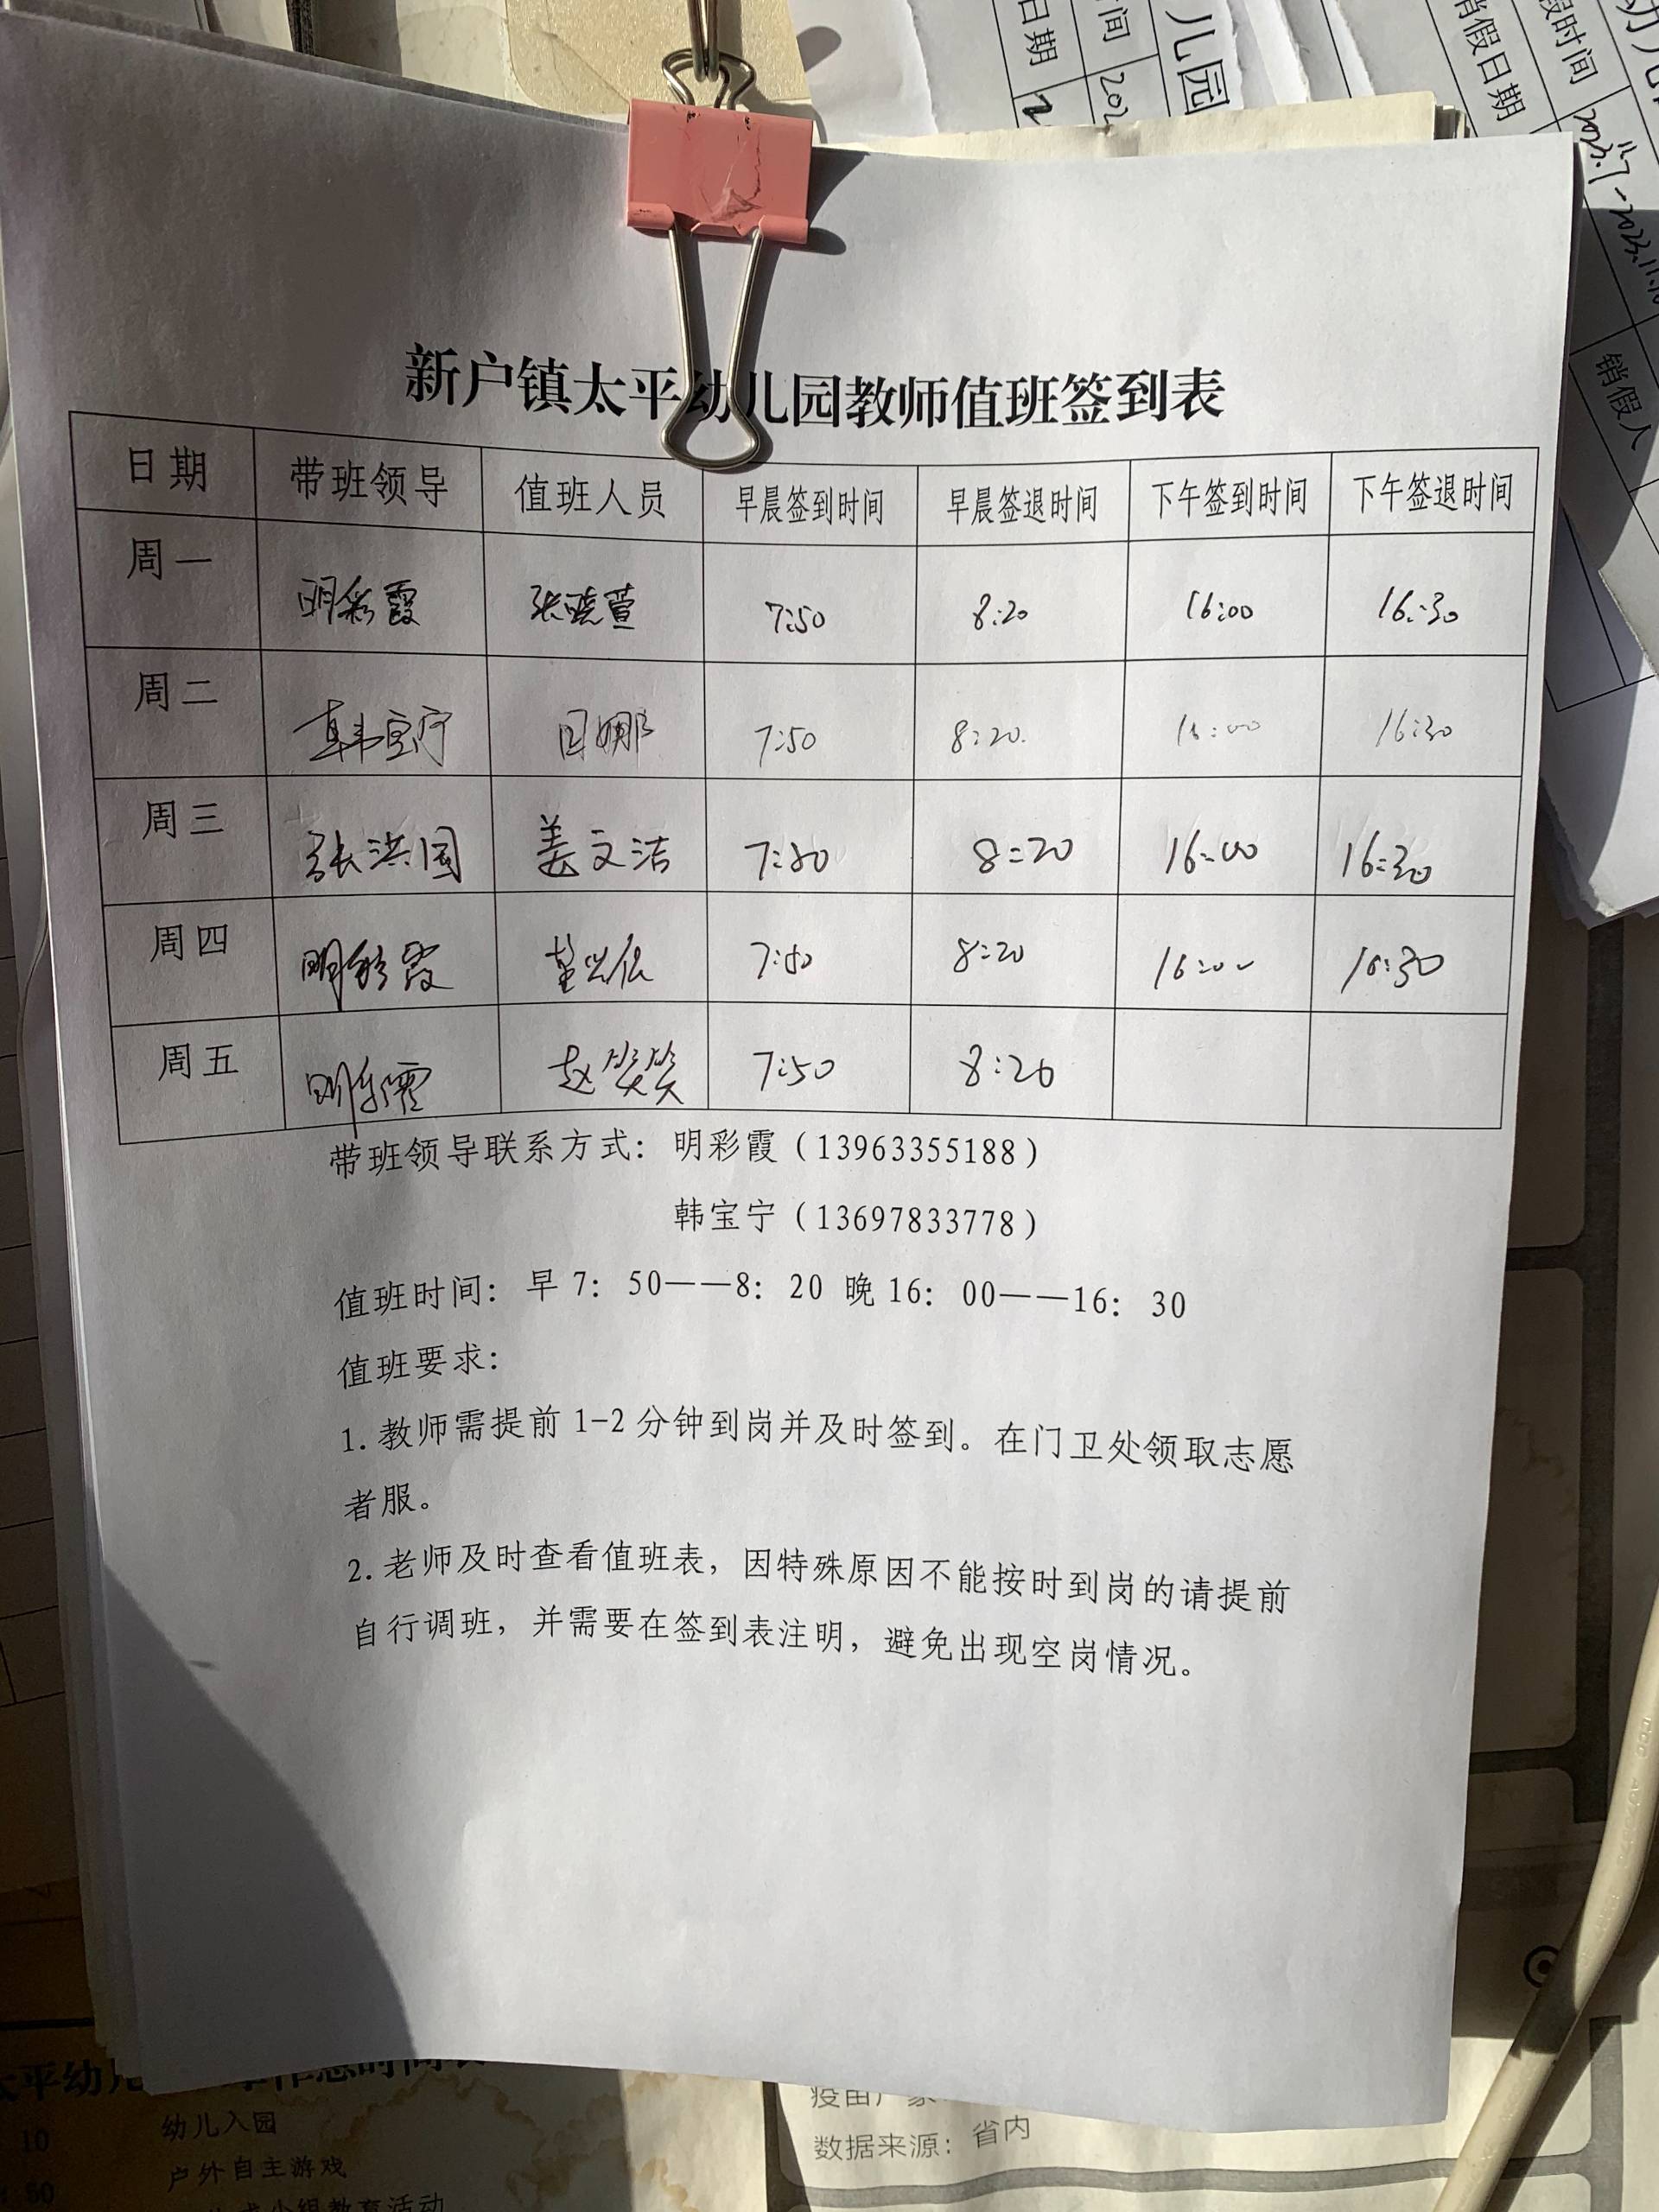 新户镇太平幼儿园教师值班签到表
日期 带班领导 值班人员 早晨签到时间 早晨签退时间 下午签到时间 下午签退时间
周一 明彩霞 张晓萱 7:50 8:20 16:00 16:30
周二 韩宝宁 7:50 8:20. 16:00 16:30
周三 张洪国 姜文洁 7:50 8:20 16:00 16:30
周四 明彩霞 7:50 8:20 16:00 16:30
周五 明彩霞 赵笑笑 7:50 8:20
带班领导联系方式：明彩霞（13963355188）
韩宝宁（13697833778）
值班时间：早7：50——8：20 晚16：00——16：30
值班要求：
1.教师需提前1-2分钟到岗并及时签到。在门卫处领取志愿
者服。
2.老师及时查看值班表，因特殊原因不能按时到岗的请提前
自行调班，并需要在签到表注明，避免出现空岗情况。
日期
儿园
销假日期
假时间
销假人
太平幼儿
10 幼儿入园
50 户外自主游戏
小组教育活动
数据来源：省内